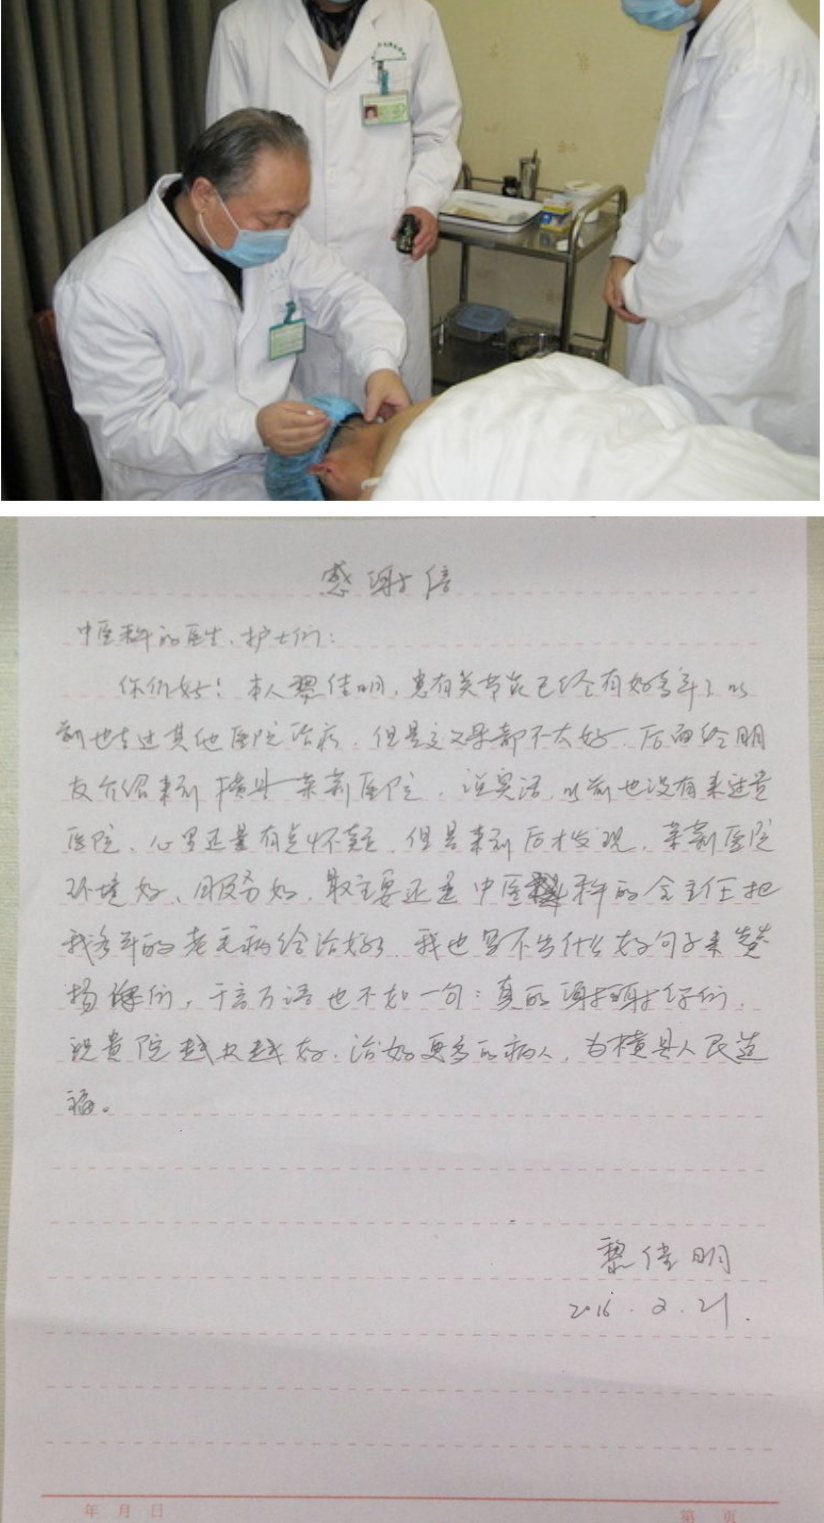 感谢信
中医科的医生、护士们：
你们好！本人黎佳明，患有关节炎已经有好多年了以
前也去过其他医院治疗，但是效果都不太好，后面经朋
友介绍来到横县莱新医院，说实话，以前也没有来过贵
医院，心里还是有点怀疑，但是来到后才发现，莱新医院
环境好、服务好，最主要还是中医科的全主任把
我多年的老毛病给治好了，我也写不出什么好句子来赞
扬你们，千言万语也不如一句：真的谢谢你们，
祝贵院越办越好，治好更多的病人，为横县人民造
福。
黎佳明
2016.2.21.
年 月 日
第 页